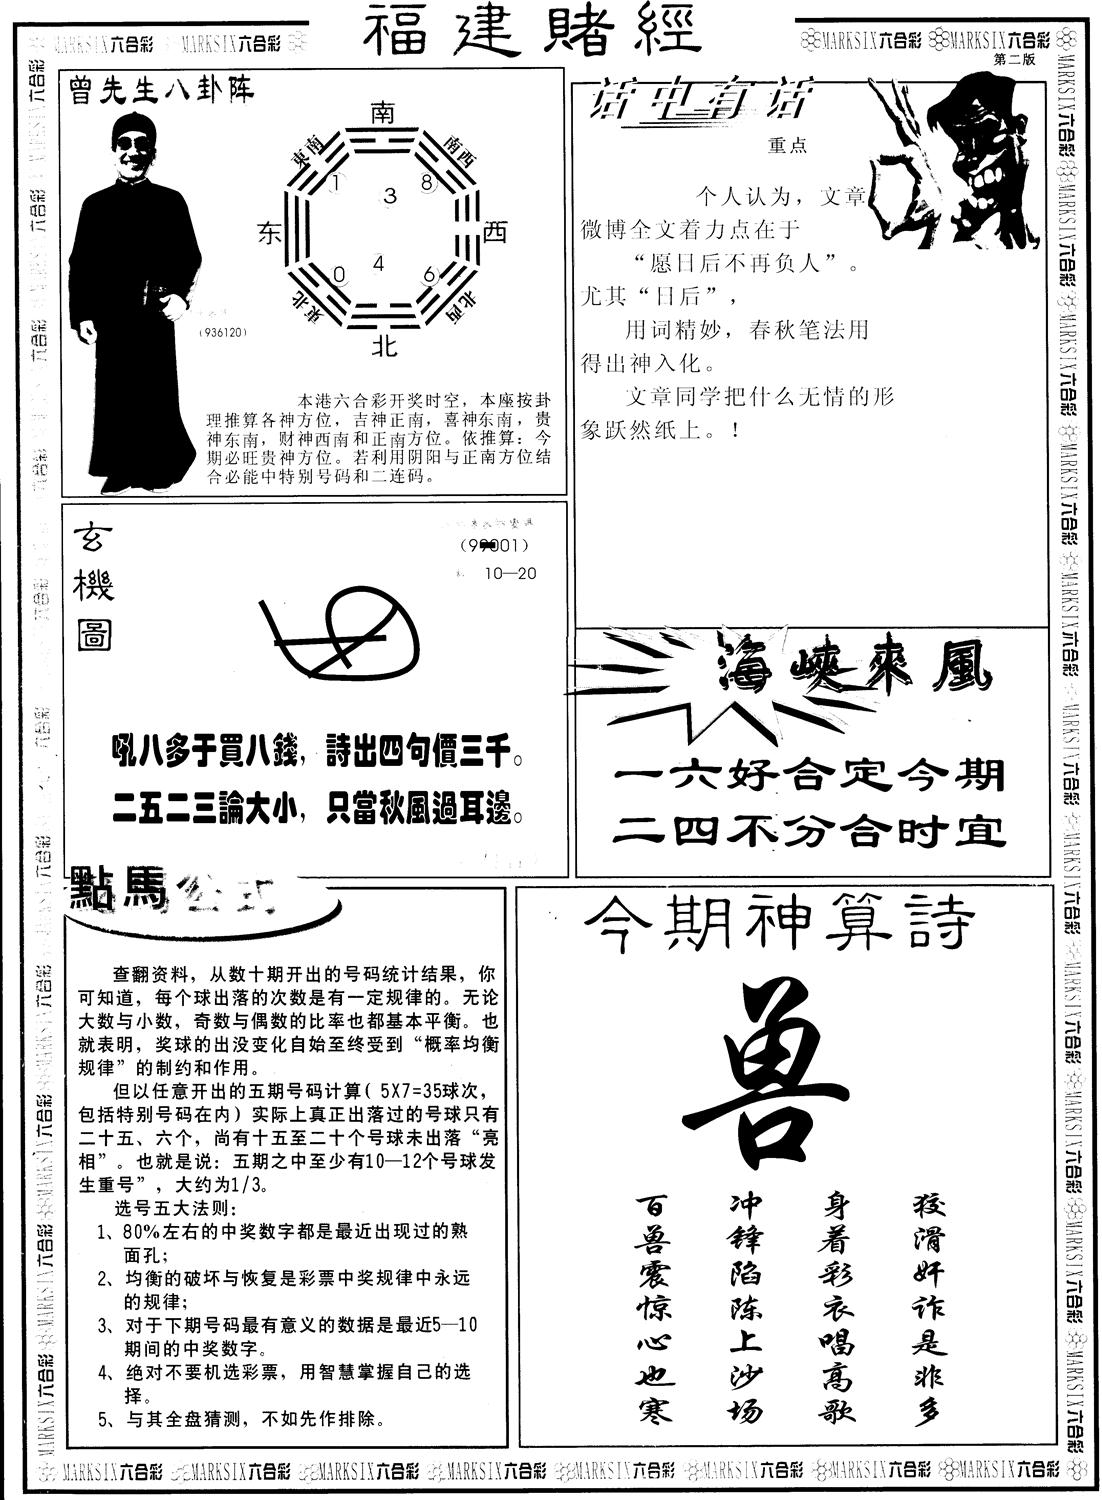 福建賭經
MARKSIX六合彩 MARKSIX六合彩
MARKSIX六合彩 MARKSIX六合彩
第二版
曾先生八卦阵
南
東南
南西
1
3
8
东
西
0
4
6
東北
北西
北
(936120)
本港六合彩开奖时空，本座按卦
理推算各神方位，吉神正南，喜神东南，贵
神东南，财神西南和正南方位。依推算：今
期必旺贵神方位。若利用阴阳与正南方位结
合必能中特别号码和二连码。
话中有话
重点
个人认为，文章
微博全文着力点在于
“愿日后不再负人”。
尤其“日后”，
用词精妙，春秋笔法用
得出神入化。
文章同学把什么无情的形
象跃然纸上。！
玄機圖
10—20
吼八多于買八錢，詩出四句價三千。
二五二三論大小，只當秋風過耳邊。
海峽來風
一六好合定今期
二四不分合时宜
點馬公式
查翻资料，从数十期开出的号码统计结果，你
可知道，每个球出落的次数是有一定规律的。无论
大数与小数，奇数与偶数的比率也都基本平衡。也
就表明，奖球的出没变化自始至终受到“概率均衡
规律”的制约和作用。
但以任意开出的五期号码计算（5X7=35球次，
包括特别号码在内）实际上真正出落过的号球只有
二十五、六个，尚有十五至二十个号球未出落“亮
相”。也就是说：五期之中至少有10—12个号球发
生重号”，大约为1/3。
选号五大法则：
1、80%左右的中奖数字都是最近出现过的熟
面孔；
2、均衡的破坏与恢复是彩票中奖规律中永远
的规律；
3、对于下期号码最有意义的数据是最近5—10
期间的中奖数字。
4、绝对不要机选彩票，用智慧掌握自己的选
择。
5、与其全盘猜测，不如先作排除。
今期神算詩
兽
狡滑奸诈是非多
身着彩衣唱高歌
冲锋陷陈上沙场
百兽震惊心也寒
MARKSIX六合彩 MARKSIX六合彩 MARKSIX六合彩 MARKSIX六合彩 MARKSIX六合彩 MARKSIX六合彩 MARKSIX六合彩 MARKSIX六合彩